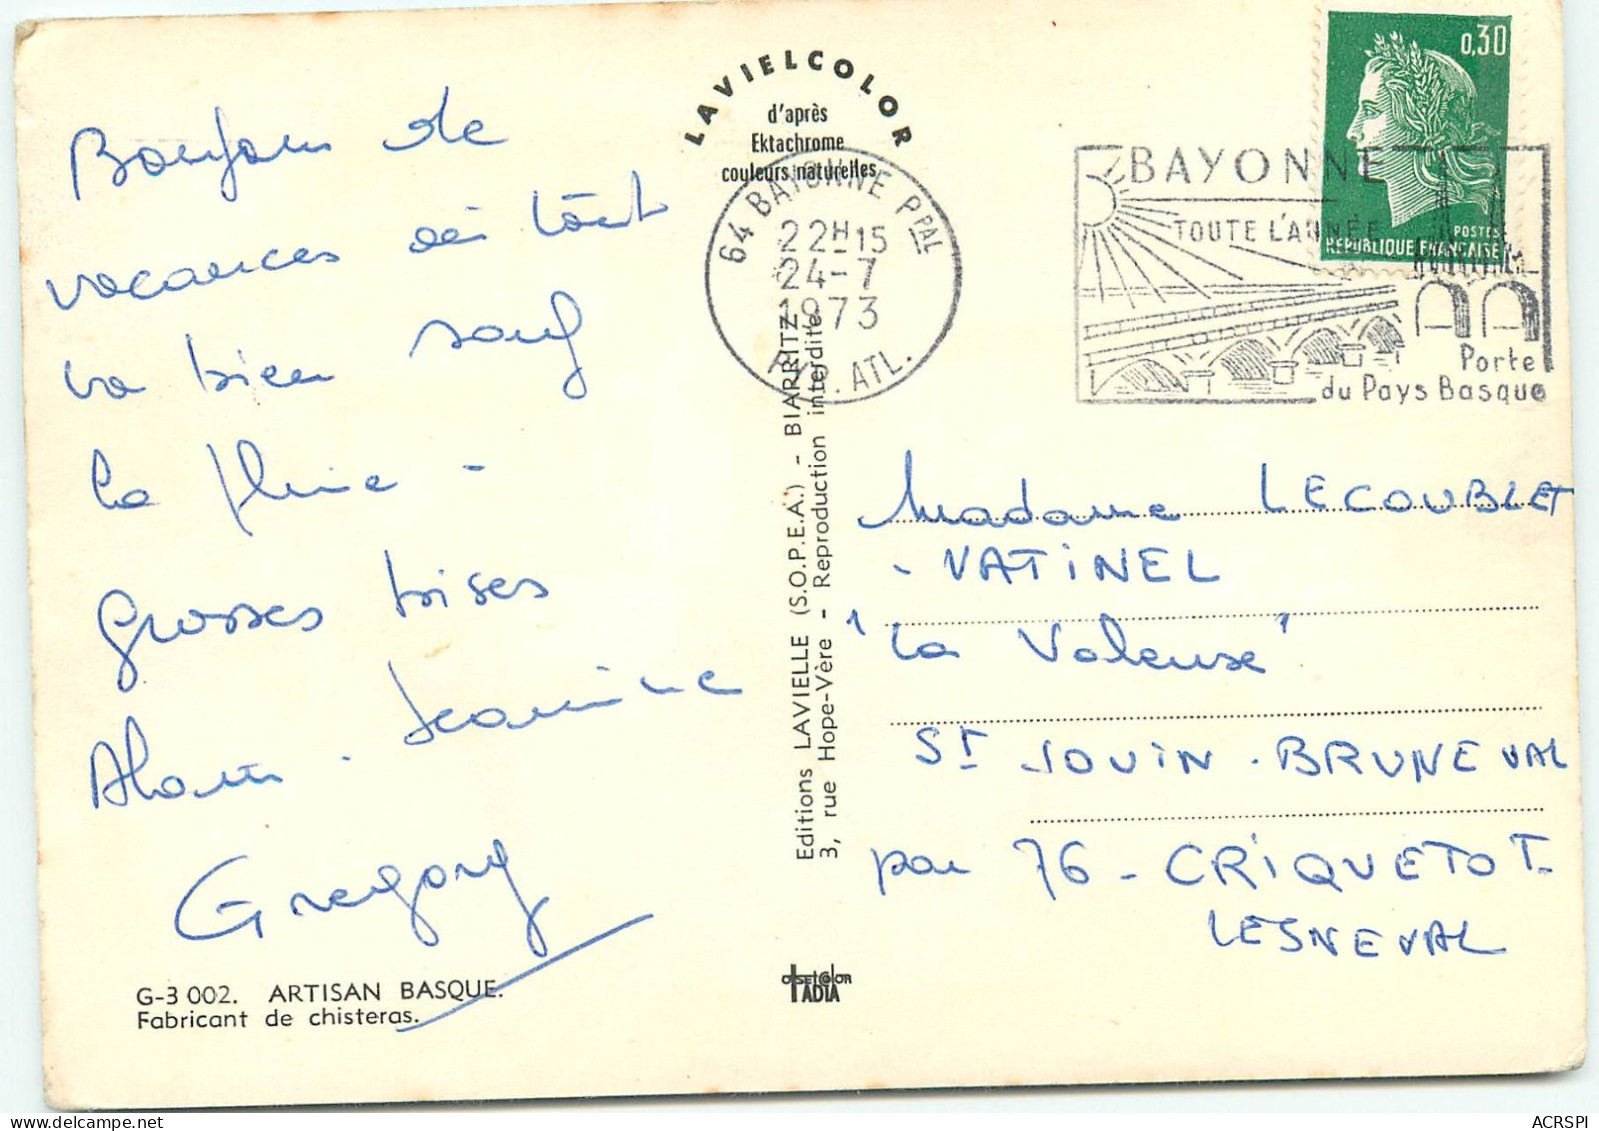 Bonjour de
vacances où tout
va bien sauf
la pluie -
grosses bises
Alain. Jeannine
Gregory
G-3 002. ARTISAN BASQUE.
Fabricant de chisteras.
LAVIELCOLOR
d'après
Ektachrome
couleurs naturelles
64 BAYONNE PPAL
22H15
24-7
1973
PYR. ATL.
Editions LAVIELLE (S.O.P.E.A.) - BIARRITZ
3, rue Hope-Vère - Reproduction interdite
OFFSETCOLOR
IADIA
0,30
POSTES
REPUBLIQUE FRANCAISE
BAYONNE
TOUTE L'ANNÉE
Porte
du Pays Basque
Madame LECOUBLET
- VATINEL
"La Valeuse"
ST JOUIN - BRUNEVAL
par 76 - CRIQUETOT-
LESNEVAL
ACRSPI